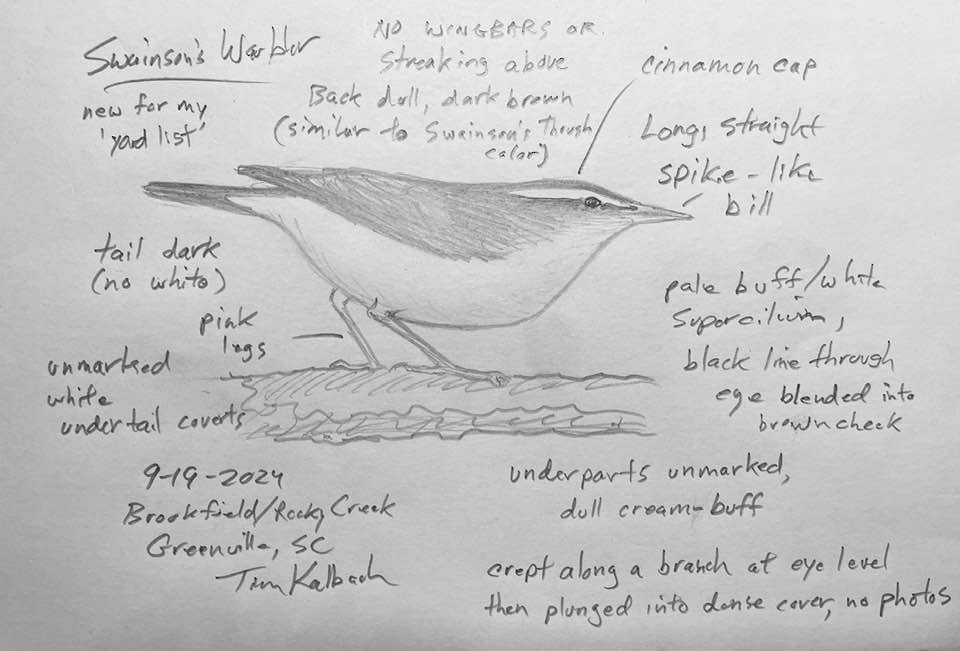 Swainson's Warbler
new for my
'yard list'
NO WINGBARS OR
Streaking above
Back dull, dark brown
(similar to Swainson's Thrush
color)
cinnamon cap
Long, straight
spike-like
bill
tail dark
(no white)
pink
legs
unmarked
white
undertail coverts
pale buff/white
Supercilium,
black line through
eye blended into
brown cheek
9-19-2024
Brookfield/Rocky Creek
Greenville, SC
Tim Kalbach
underparts unmarked,
dull cream-buff
crept along a branch at eye level
then plunged into dense cover, no photos